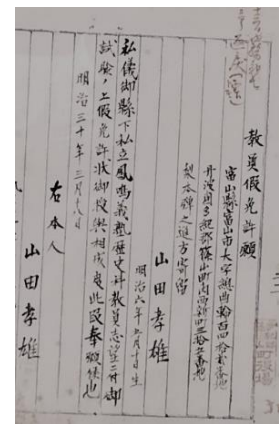 教員假許願
富山縣富山市大字總曲輪百四拾壹番地
丹波国多紀郡篠山町内西新町三拾五番地
製本錦之進方寄留
山田孝雄
明治六年五月十日生
私儀御縣下私立鳳鳴義塾歴史科教員志望ニ付御
試験ノ上假免許状御授與相成度此段奉願候也
明治三十年三月十八日
右本人
山田孝雄